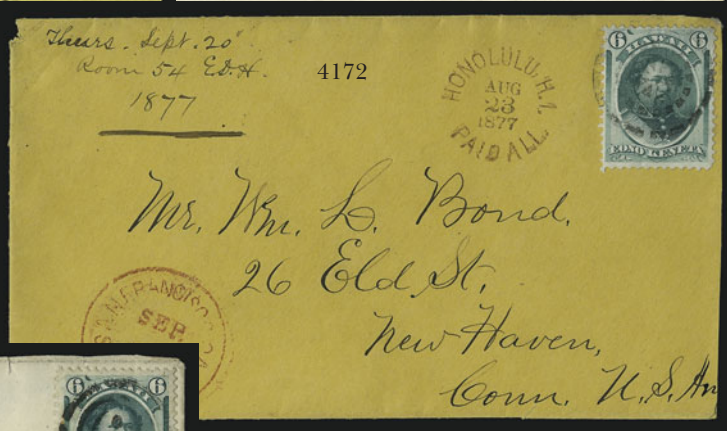 Thurs. Sept. 20
Room 54 E.D.H.
1877
4172
HONOLULU, H.I.
AUG
23
1877
PAID ALL
6 6
Mr. Wm. L. Bond.
26 Eld St.
New Haven,
Conn. U.S.Am
SAN FRANCISCO
SEP.
6 6